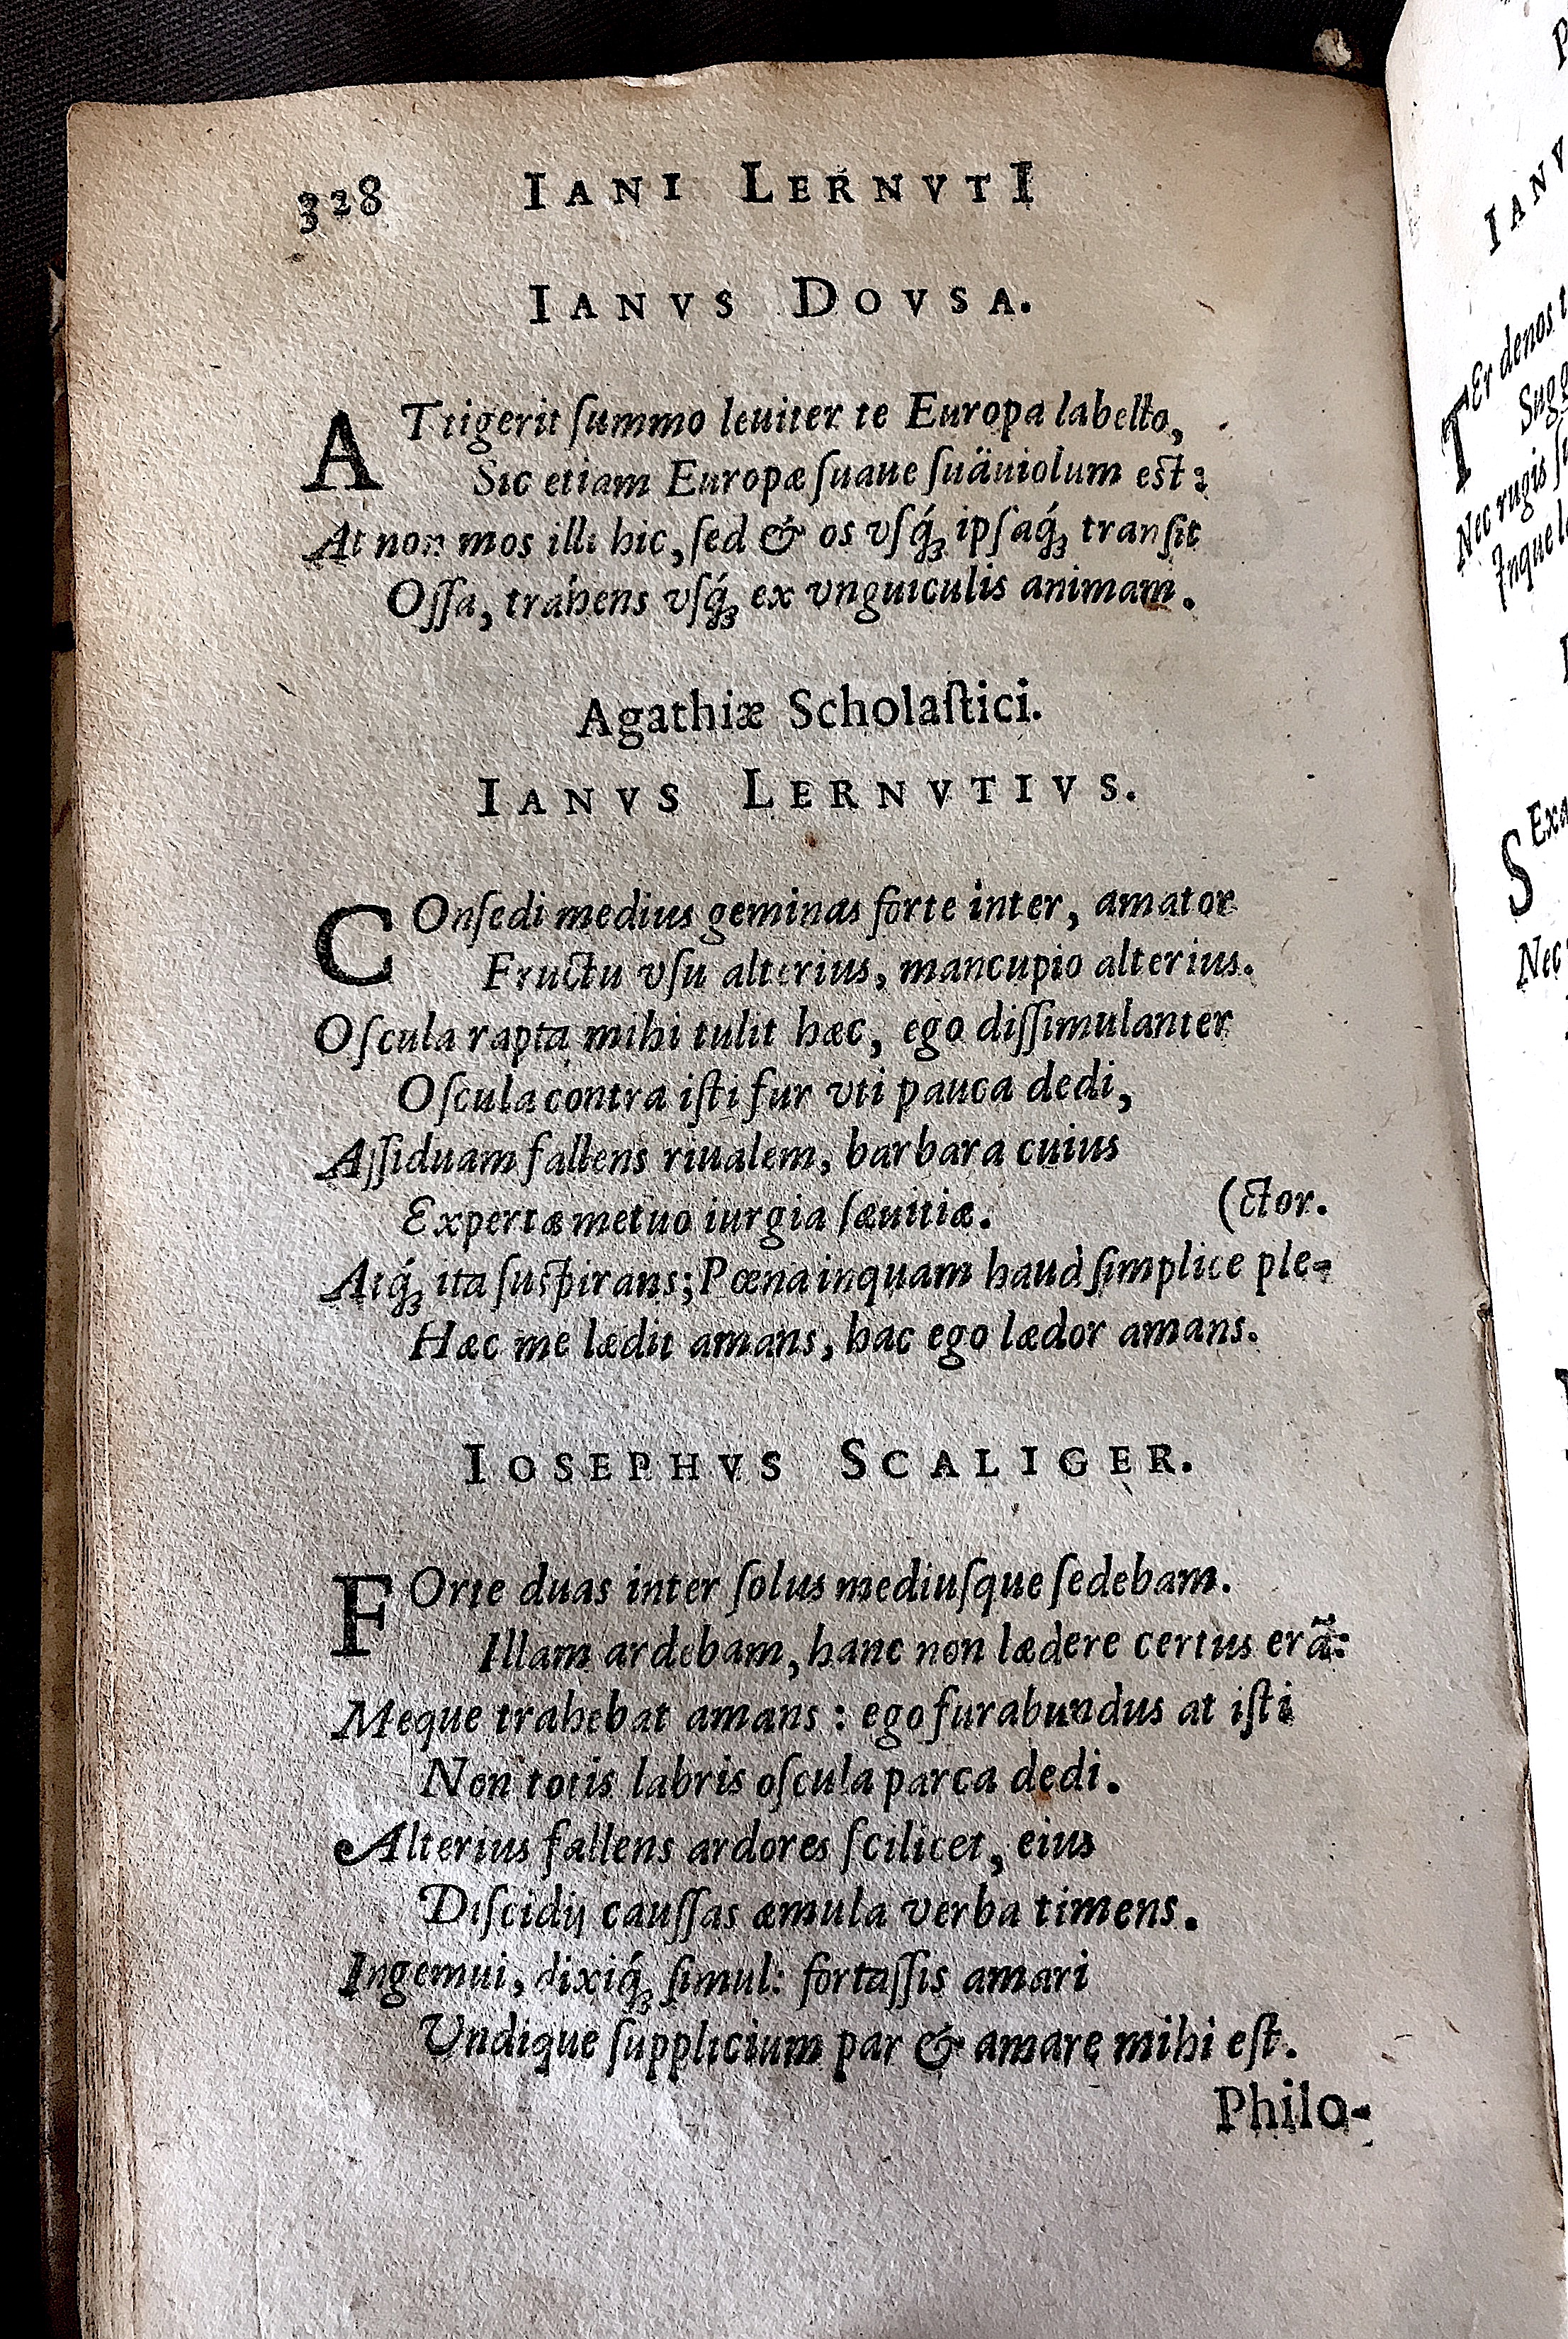 328 IANI LERNVTI
IANVS DOVSA.
ATtigerit ſummo leuiter te Europa labello,
Sic etiam Europæ ſuaue ſuäuiolum eſt:
At non mos illi hic, ſed & os vſq́ꝫ ipſaq́ꝫ tranſit
Oſſa, trahens vſq́ꝫ ex vnguiculis animam.
Agathiæ Scholaſtici.
IANVS LERNVTIVS.
COnſedi medius geminas forte inter, amator
Fructu vſu alterius, mancupio alterius.
Oſcula rapta mihi tulit hæc, ego diſſimulanter
Oſcula contra iſti fur vti pauca dedi,
Aſſiduam fallens riualem, barbara cuius
Expertæ metuo iurgia ſæuitiæ. (ctor.
Atq́ꝫ ita ſuſpirans; Pœna inquam haud ſimplice ple-
Hæc me lædit amans, hac ego lædor amans.
IOSEPHVS SCALIGER.
FOrte duas inter ſolus mediuſque ſedebam.
Illam ardebam, hanc non lædere certus erā:
Meque trahebat amans : ego furabundus at iſti
Non totis labris oſcula parca dedi.
Alterius fallens ardores ſcilicet, eius
Diſcidij cauſſas æmula verba timens.
Ingemui, dixiq́ꝫ ſimul: fortaſſis amari
Undique ſupplicium par & amare mihi eſt.
Philo-
IANV
TEr denos
Nec rugis
Inque
SExa
Nec